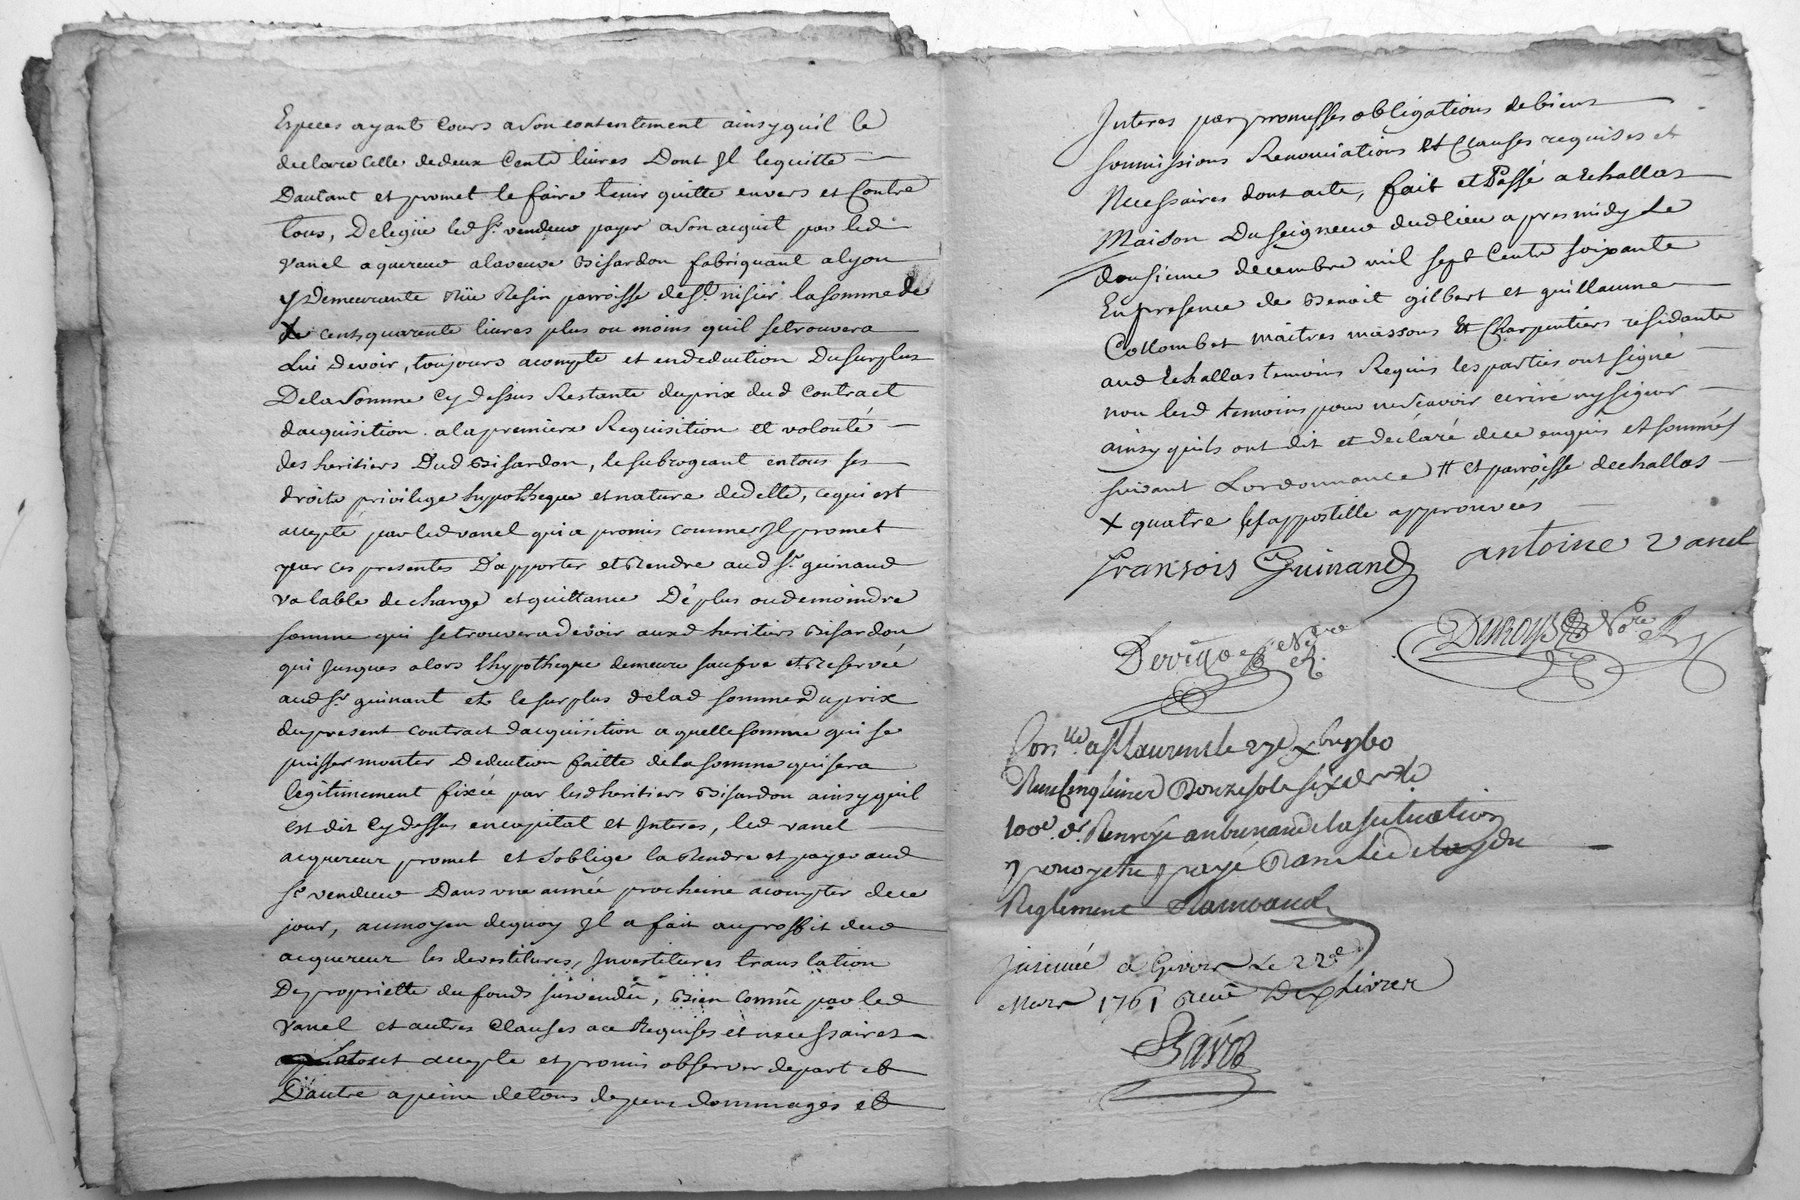 Especes ayant Cours a son contentement ainsy quil le
declare Celle de deux Cents livres Dont Il le quitte
Dautant et promet le faire tenir quitte envers et Contre
tous, Delegüe led Sr. vendeur payer a Son acquit par led
vanel aquereur a la veuve Bisardon fabriquant a lyon
y Demeurante Rüe Resin parroisse de St. nisier la somme de
X cents quarente livres plus ou moins quil se trouvera
Lui devoir, toujours acompte et en deduction Du surplus
De la Somme Cy dessus Restante du prix dud Contract
dacquisition a la premiere Requisition et volonté
des heritiers Dud Bisardon, le subrogeant en tous ses
droits privilege hypotheque et nature dedelle, ce qui est
accepté par led vanel qui a promis comme Il promet
par ces presentes D'apporter et Rendre aud Sr. guinand
valable decharge et quittance De plus ou de moindre
somme qui se trouvera devoir auxd heritiers Bisardon
qui Jusques alors l'hypotheque demeure saufve et Reservée
aud Sr guinant et le surplus de lad somme Du prix
du present contract dacquisition a quelle somme qui se
puisse monter Deduction faitte de la somme qui sera
legitimement fixée par lesd heritiers Bisardon ainsy quil
est dit Cy dessus en capital et Interes, led vanel
acquereur promet et S oblige la Rendre et payer aud
Sr vendeur Dans une année prochaine a compter de ce
jour, au moyen de quoy Il a fait au proffit dud
acquereur les devestitures, Investitures translation
De proprietté du fonds susvendû, Bien comme par led
vanel et autres Clauses a ce Requises et necessaires
Le tout accepte et promis observer de part et
D'autre a peine de tous depens dommages et
Interes par promesses obligations de biens
soumissions Renonciations Et Clauses requises et
Necessaires dont acte, fait et Passé a Echallas
Maison Du seigneur dud lieu apres midy le
dousieme decembre mil sept Cents soixante
En presence de Benoit gilbert et guillaume
Collombet maitres massons Et Charpentiers residants
aud Echallas temoins Requis les parties ont signé
non lesd temoins pour ne scavoir ecrire ny signer
ainsy quils ont dit et declaré de ce enquis et sommés
suivant Lordonnance # et parroisse dechallas
X quatre appostille approuvées
François Guinand antoine vanel
Nre
Duroys Nore R
a St Laurent le 27e xbre 1760
Reglement
Insinuée a Givors Le 22e
Mars 1761 Livres